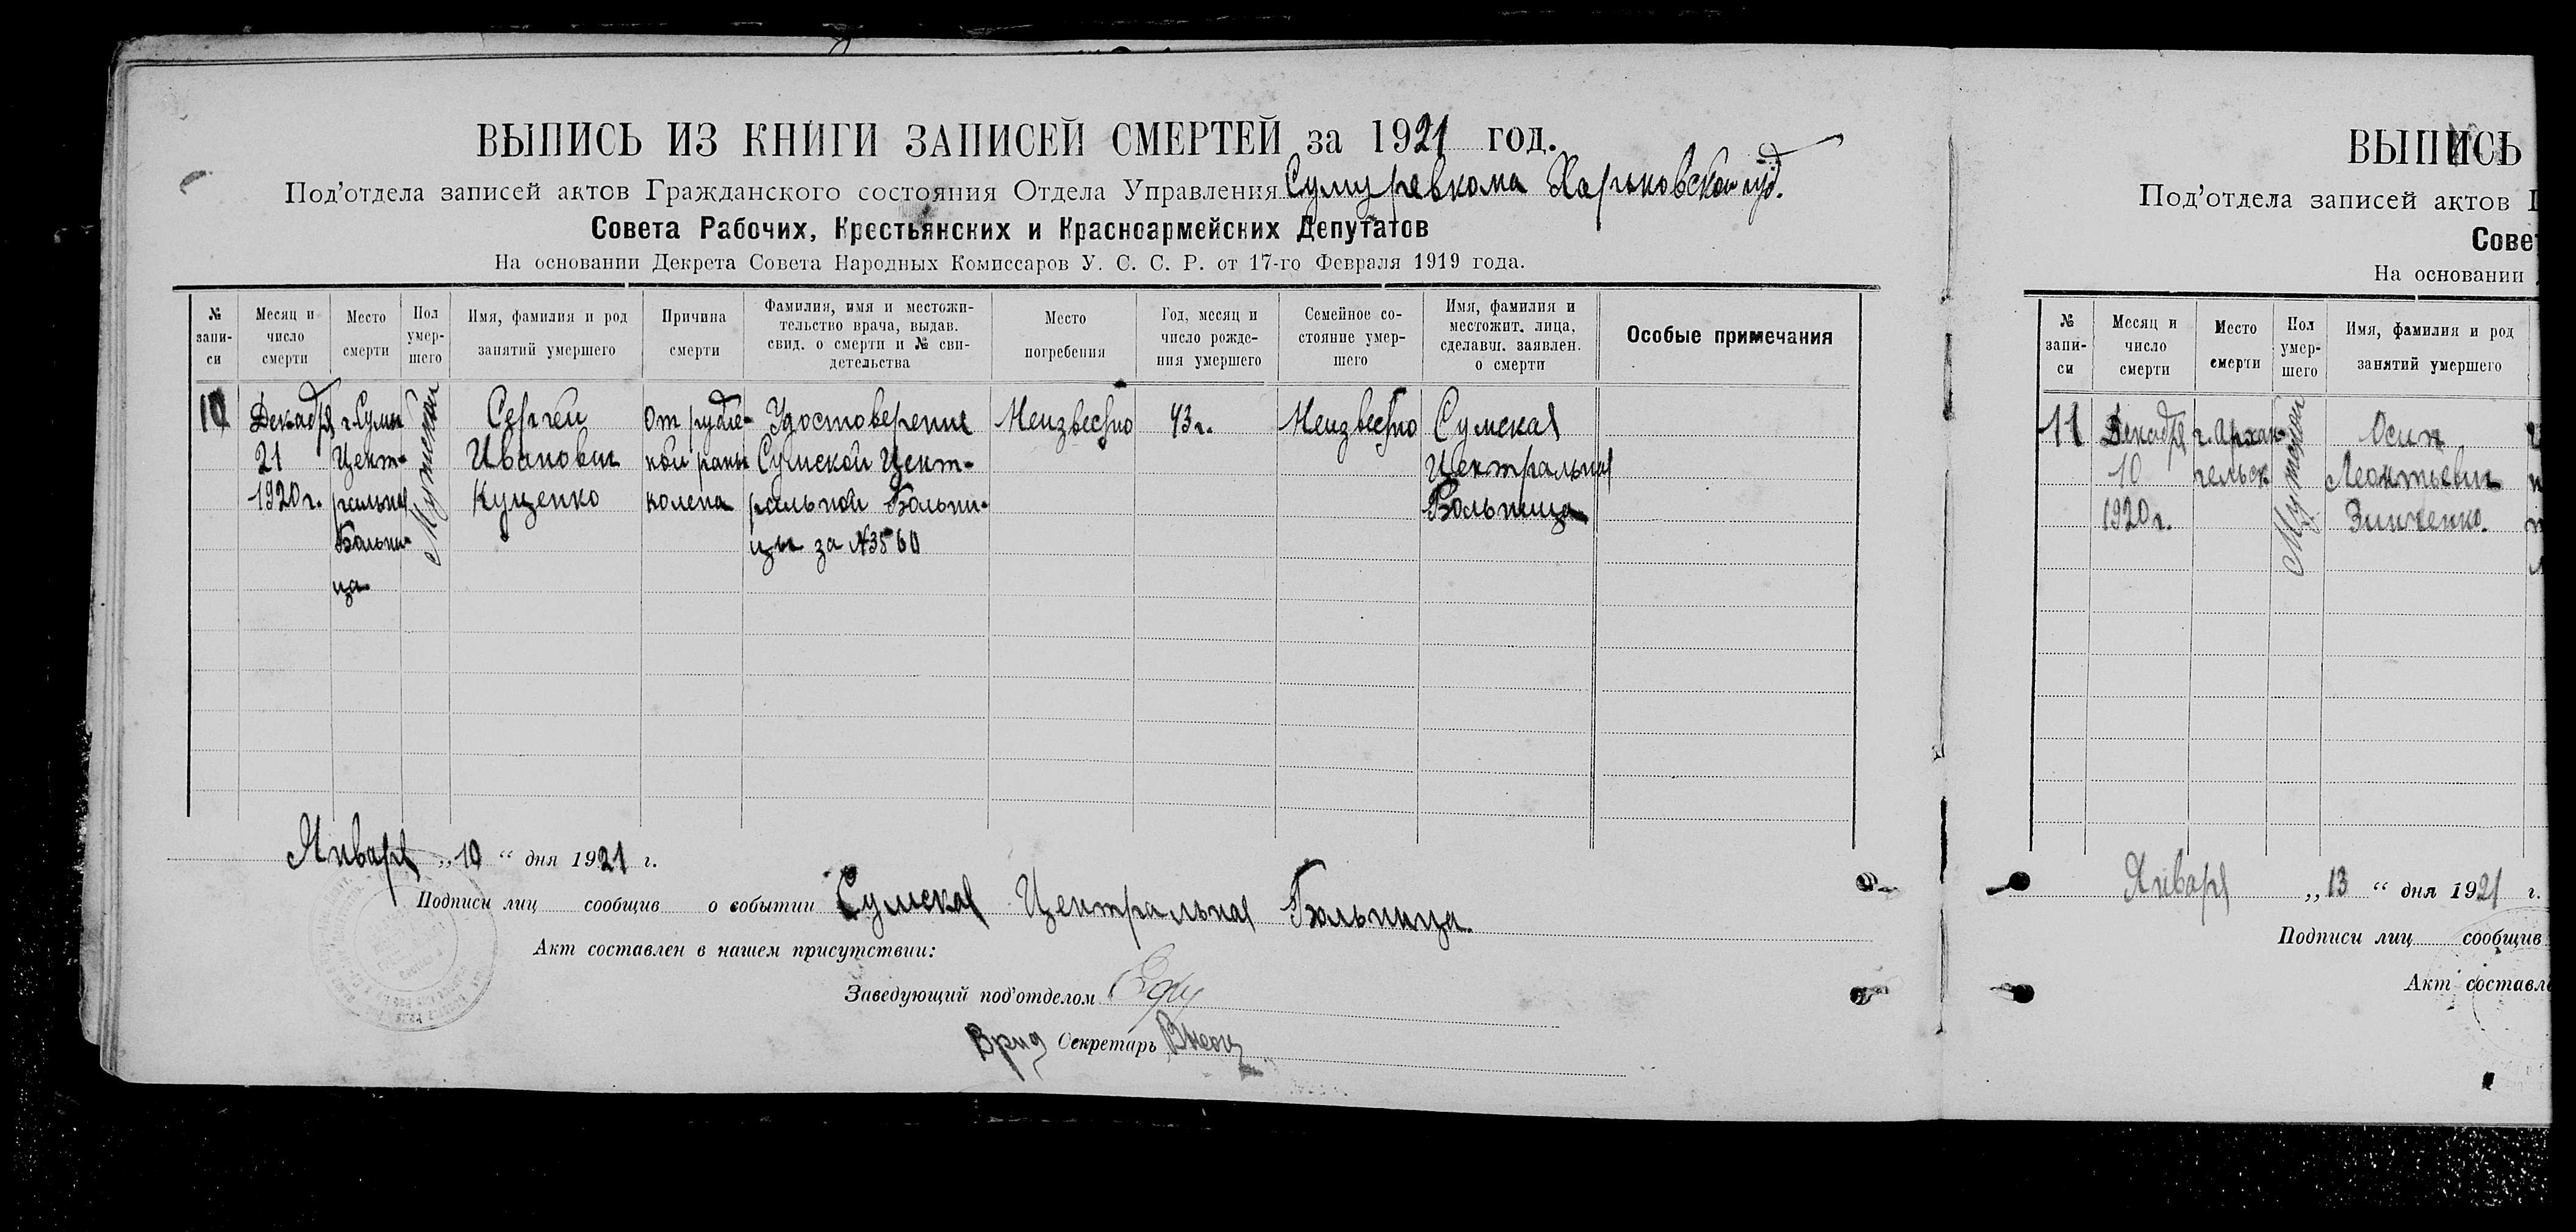 ВЫПИСЬ ИЗ КНИГИ ЗАПИСЕЙ СМЕРТЕЙ за 1921 год.
Под'отдела записей актов Гражданского состояния Отдела Управления Сумуревкома Харьковской губ.
Совета Рабочих, Крестьянских и Красноармейских Депутатов
На основании Декрета Совета Народных Комиссаров У. С. С. Р. от 17-го Февраля 1919 года.
№ запи-
си
Месяц и
число
смерти
Место
смерти
Пол
умер-
шего
Имя, фамилия и род
занятий умершего
Причина
смерти
Фамилия, имя и местожи-
тельство врача, выдав.
свид. о смерти и № сви-
детельства
Место
погребения
Год, месяц и
число рожде-
ния умершего
Семейное со-
стояние умер-
шего
Имя, фамилия и
местожит. лица,
сделавш. заявлен.
о смерти
Особые примечания
10
Декабря
21
1920 г.
г. Сумы
Цент-
ральная
Больни-
ца
Мужской
Сергей
Иванович
Куценко
От рубле-
ной раны
колена
Удостоверение
Сумской Цент-
ральной Больни-
цы за №3560
Неизвестно
43 г.
Неизвестно
Сумская
Центральная
Больница
Января „10“ дня 1921 г.
Подписи лиц сообщив о событии Сумская Центральная Больница.
Акт составлен в нашем присутствии:
Заведующий под'отделом
Врид Секретарь
ВЫПИСЬ
Под'отдела записей актов
Сове
На основании
№
запи-
си
Месяц и
число
смерти
Место
смерти
Пол
умер-
шего
Имя, фамилия и род
занятий умершего
11
Декабря
10
1920 г.
г. Архан-
гельск
Мужской
Осип
Леонтьевич
Зинченко.
Января „13“ дня 1921 г.
Подписи лиц сообщив
Акт составле